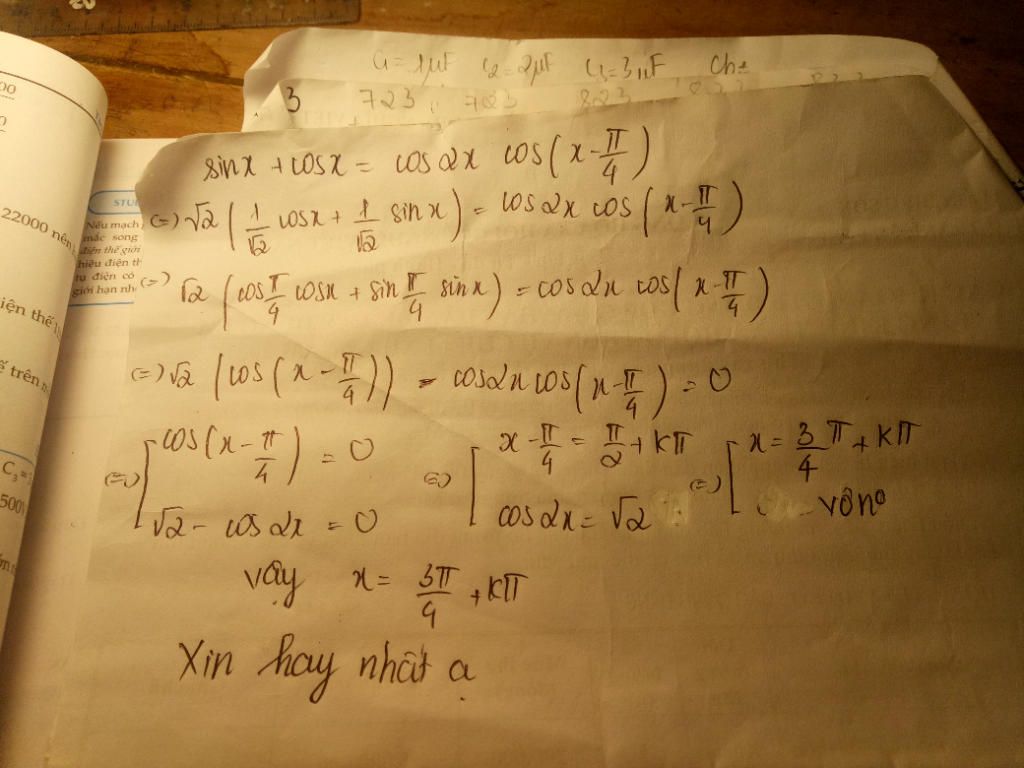 C1=1μF C2=2μF C3=3μF
3 723 723 823
sinx + cosx = cos2x cos(x-π/4)
(=) √2 (1/√2 cosx + 1/√2 sinx) = cos2x cos(x-π/4)
(=) √2 (cos π/4 cosx + sin π/4 sinx) = cos2x cos(x-π/4)
(=) √2 (cos(x-π/4)) - cos2x cos(x-π/4) = 0
(=) [ cos(x-π/4) = 0 (=) [ x-π/4 = π/2 + kπ (=) [ x = 3/4 π + kπ
√2 - cos2x = 0 cos2x = √2 vôno
vậy x = 3π/4 + kπ
Xin hay nhất ạ
22000 nên
STU
Nếu mạch
mắc song
điện thế giới
hiệu điện th
tụ điện có
giới hạn nh
iện thế
trên
C3 = 3
500